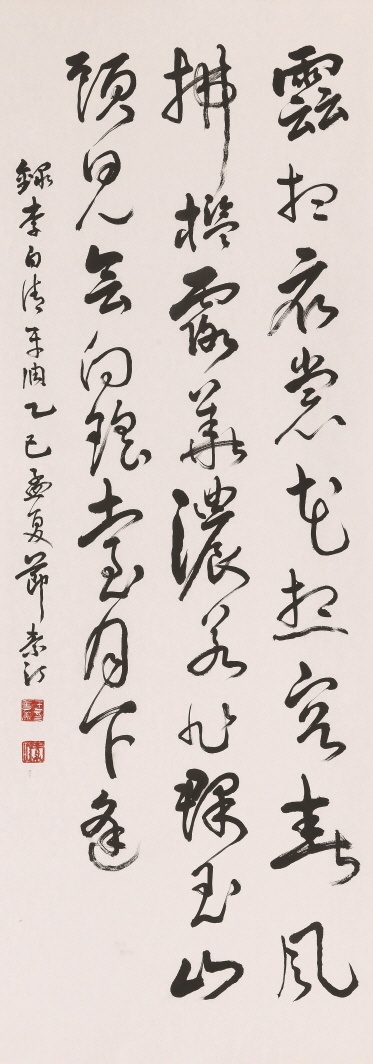 雲想衣裳花想容春風
拂檻露華濃若非群玉山
頭見會向瑤臺月下逢
錄李白清平調乙巳孟夏節素